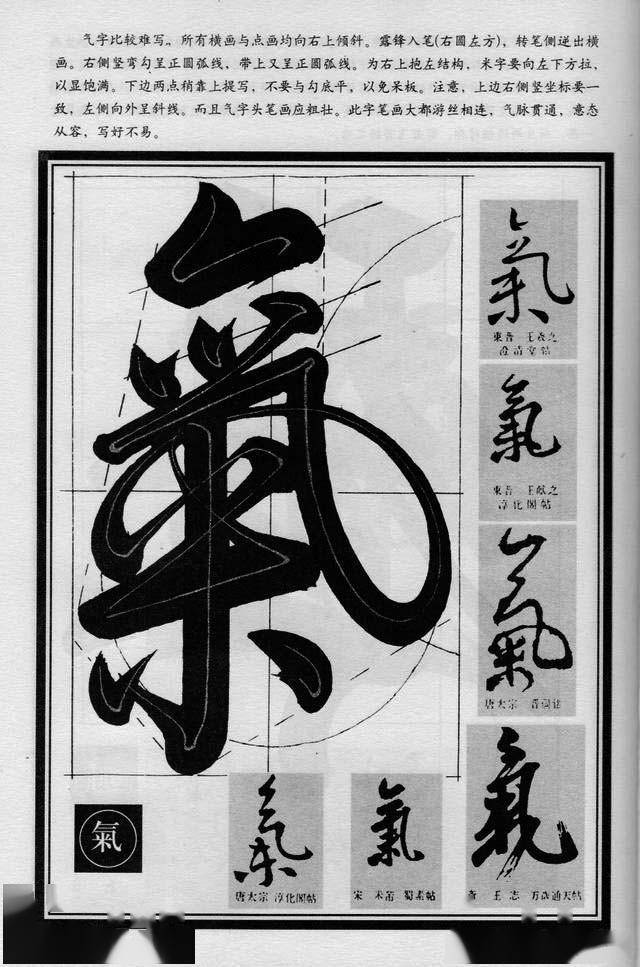 气字比较难写。所有横画与点画均向右上倾斜。露锋入笔(右圆左方)，转笔侧逆出横
画。右侧竖弯勾呈正圆弧线，带上又呈正圆弧线。为右上抱左结构，米字要向左下方拉，
以显饱满。下边两点稍靠上提写，不要与勾底平，以免呆板。注意，上边右侧竖坐标要一
致，左侧向外呈斜线。而且气字头笔画应粗壮。此字笔画大都游丝相连，气脉贯通，意态
从容，写好不易。
氣
氣
東晋 王羲之
澄清堂帖
氣
東晋 王献之
淳化閣帖
氣
唐太宗 晋祠铭
氣
唐太宗 淳化閣帖
氣
宋 米芾 蜀素帖
氣
王志 万歲通天帖
氣